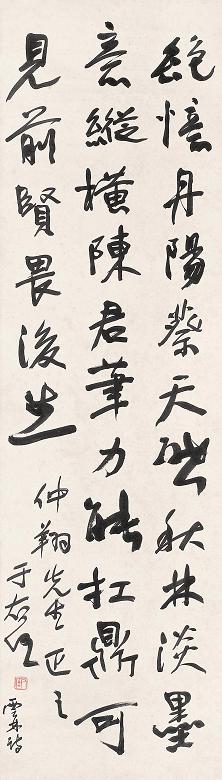 絕憶丹陽蔡天啟秋林淡墨
意縱橫陳君筆力能扛鼎可
見前賢畏後生
仲翔先生正之
于右任
雲林詩